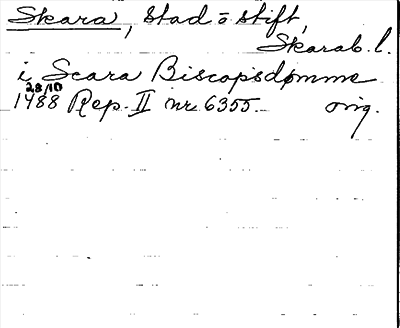 Skara, stad o stift,
Skarab. l.
i Scara Biscopsdømme
28/10
1488 Rep. II nr. 6355. orig.